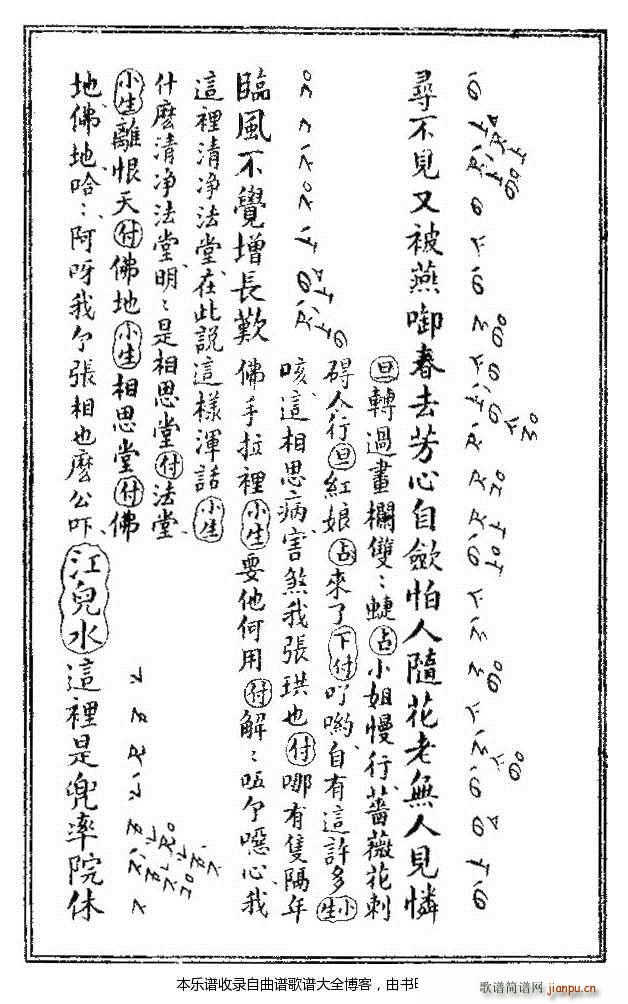 尋不見又被燕啣春去芳心自斂怕人隨花老無人見憐
旦轉過畫欄雙〻蜨占小姐慢行薔薇花刺
碍人行旦紅娘占來了下付吖喲自有這許多小生
臨風不覺增長歎
咳這相思病害煞我張珙也付哪有隻隔年
佛手拉裡小生要他何用付解〻噁心我
這裡清净法堂在此説這樣渾話小生
什麽清净法堂明〻是相思堂付法堂
小生離恨天付佛地小生相思堂付佛
地佛地哈〻阿呀我个張相也麽公吓
江兒水這裡是兜率院休
本乐谱收录自曲谱歌谱大全博客，由书
歌谱简谱网
jianpu.cn